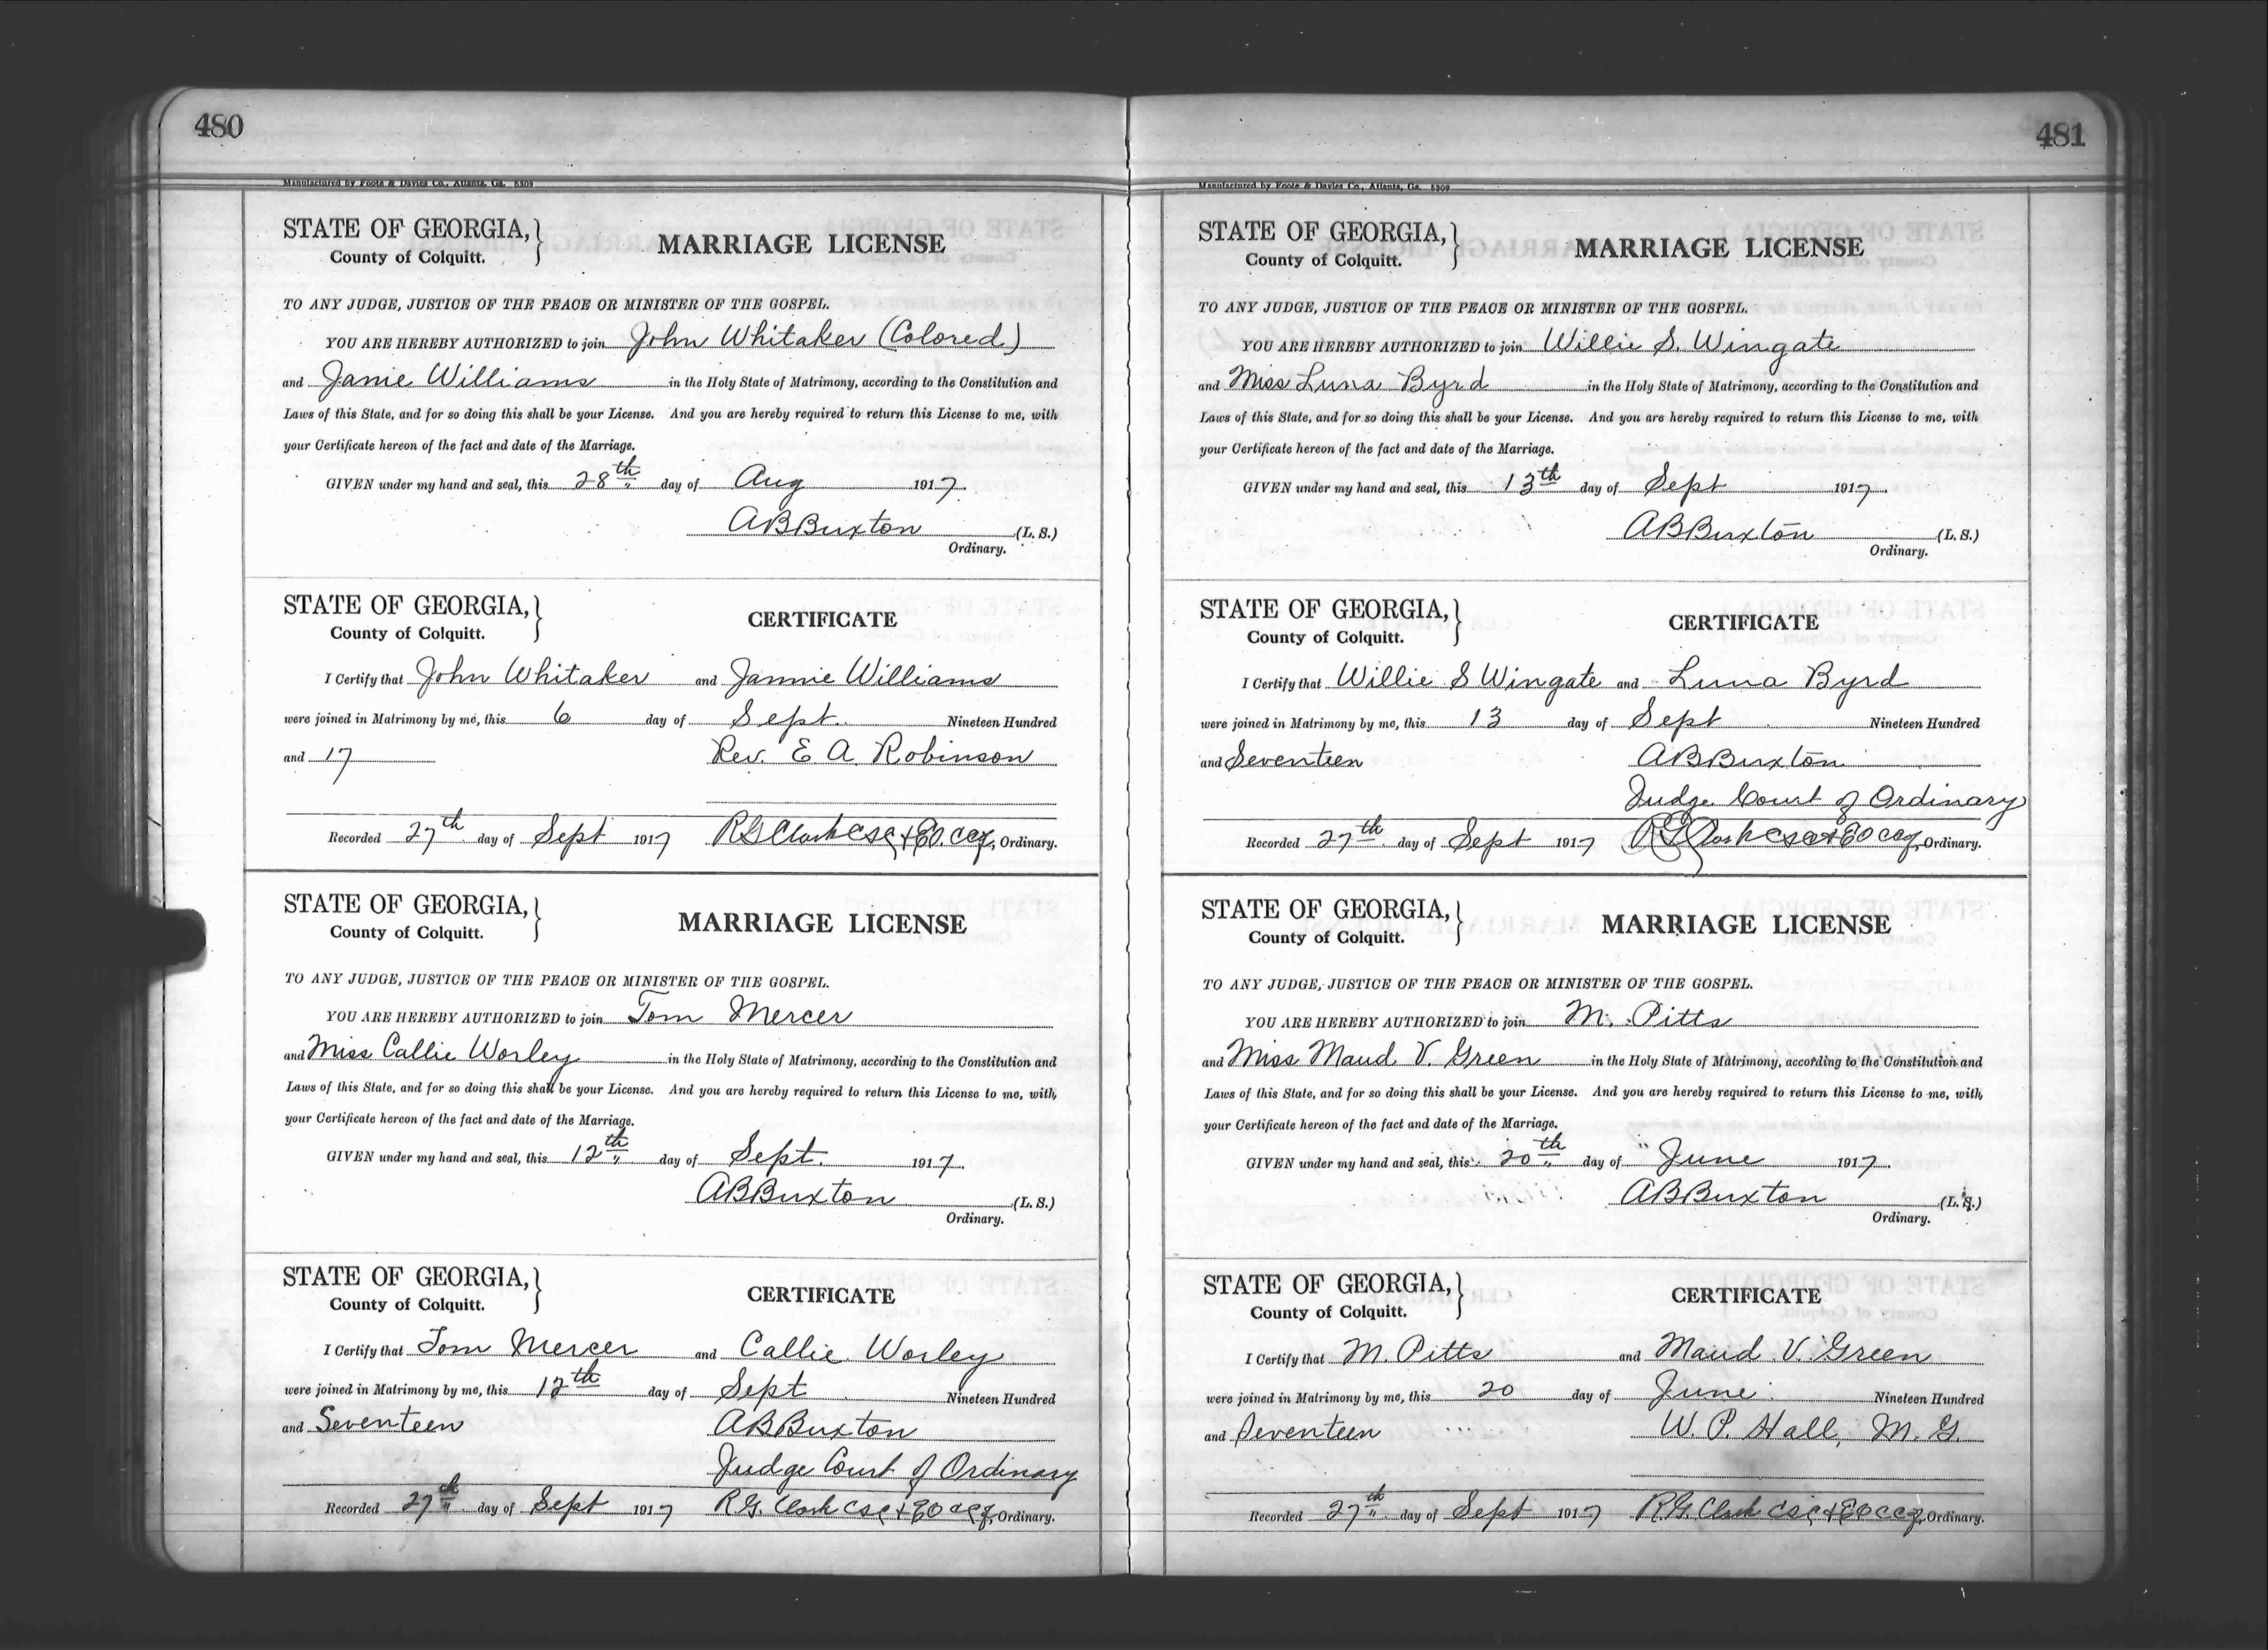 480
Manufactured by Foote & Davies Co., Atlanta, Ga. 5309
STATE OF GEORGIA,
County of Colquitt.
MARRIAGE LICENSE
TO ANY JUDGE, JUSTICE OF THE PEACE OR MINISTER OF THE GOSPEL.
YOU ARE HEREBY AUTHORIZED to join John Whitaker (Colored)
and Janie Williams in the Holy State of Matrimony, according to the Constitution and
Laws of this State, and for so doing this shall be your License. And you are hereby required to return this License to me, with
your Certificate hereon of the fact and date of the Marriage.
GIVEN under my hand and seal, this 28th day of Aug 1917.
AB Buxton (L. S.)
Ordinary.
STATE OF GEORGIA,
County of Colquitt.
CERTIFICATE
I Certify that John Whitaker and Jannie Williams
were joined in Matrimony by me, this 6 day of Sept. Nineteen Hundred
and 17 Rev. E A. Robinson
Recorded 27th day of Sept 1917 RG Clark CSC + EO CCG, Ordinary.
STATE OF GEORGIA,
County of Colquitt.
MARRIAGE LICENSE
TO ANY JUDGE, JUSTICE OF THE PEACE OR MINISTER OF THE GOSPEL.
YOU ARE HEREBY AUTHORIZED to join Tom Mercer
and Miss Callie Worley in the Holy State of Matrimony, according to the Constitution and
Laws of this State, and for so doing this shall be your License. And you are hereby required to return this License to me, with
your Certificate hereon of the fact and date of the Marriage.
GIVEN under my hand and seal, this 12th day of Sept. 1917.
AB Buxton (L. S.)
Ordinary.
STATE OF GEORGIA,
County of Colquitt.
CERTIFICATE
I Certify that Tom Mercer and Callie Worley
were joined in Matrimony by me, this 12th day of Sept Nineteen Hundred
and Seventeen AB Buxton
Judge Court of Ordinary
Recorded 27th day of Sept 1917 R.G. Clark CSC + EO CCG, Ordinary.
481
Manufactured by Foote & Davies Co., Atlanta, Ga. 5309
STATE OF GEORGIA,
County of Colquitt.
MARRIAGE LICENSE
TO ANY JUDGE, JUSTICE OF THE PEACE OR MINISTER OF THE GOSPEL.
YOU ARE HEREBY AUTHORIZED to join Willie S. Wingate
and Miss Luna Byrd in the Holy State of Matrimony, according to the Constitution and
Laws of this State, and for so doing this shall be your License. And you are hereby required to return this License to me, with
your Certificate hereon of the fact and date of the Marriage.
GIVEN under my hand and seal, this 13th day of Sept 1917.
AB Buxton (L. S.)
Ordinary.
STATE OF GEORGIA,
County of Colquitt.
CERTIFICATE
I Certify that Willie S Wingate and Luna Byrd
were joined in Matrimony by me, this 13 day of Sept Nineteen Hundred
and Seventeen AB Buxton
Judge Court of Ordinary
Recorded 27th day of Sept 1917 RG Clark CSC + EO CCG, Ordinary.
STATE OF GEORGIA,
County of Colquitt.
MARRIAGE LICENSE
TO ANY JUDGE, JUSTICE OF THE PEACE OR MINISTER OF THE GOSPEL.
YOU ARE HEREBY AUTHORIZED to join M. Pitts
and Miss Maud V. Green in the Holy State of Matrimony, according to the Constitution and
Laws of this State, and for so doing this shall be your License. And you are hereby required to return this License to me, with
your Certificate hereon of the fact and date of the Marriage.
GIVEN under my hand and seal, this 20th day of June 1917.
AB Buxton (L. S.)
Ordinary.
STATE OF GEORGIA,
County of Colquitt.
CERTIFICATE
I Certify that M. Pitts and Maud V. Green
were joined in Matrimony by me, this 20 day of June Nineteen Hundred
and Seventeen W. P. Hall, M. G.
Recorded 27th day of Sept 1917 R.G. Clark CSC + EO CCG, Ordinary.